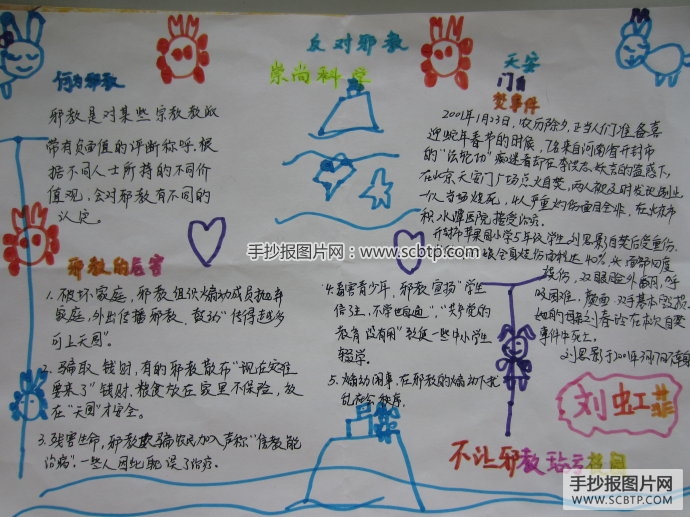 反对邪教
崇尚科学
何为邪教
邪教是对某些宗教教派
带有负面值的评断称呼.根
据不同人士所持的不同价
值观,会对邪教有不同的
认定。
邪教的危害
1.破坏家庭,邪教组织煽动成员抛弃
家庭,外出传播邪教,鼓动"传得越多
可上天国"。
2.骗取钱财,有的邪教散布"现在灾难
要来了"钱财、粮食放在家里不保险,放
在"天国"才安全。
3.残害生命,邪教欺骗农民加入声称"信教能
治病",一些人因此耽误了治疗。
4.毒害青少年,邪教宣扬"学生
信了主,不学也自通","共产党的
教育没有用"致使一些中小学生
辍学。
5.煽动闹事,在邪教的煽动下扰
乱社会秩序。
天安
门自
焚事件
2001年1月23日,农历除夕,正当人们准备喜
迎蛇年春节的时候,7名来自河南省开封市
的"法轮功"痴迷者却在李洪志歪言的蛊惑下,
在北京天安门广场点火自焚,两人被及时发现制止
一人当场烧死,4人严重灼伤面目全非,在北京市
积水潭医院接受治疗。
开封市苹果园小学5年级学生刘思影自焚后受重伤,
全身烧伤面积达40%,头面部四度
烧伤,双眼睑外翻,呼
吸困难,颜面、双手基本毁损,
她的母亲刘春玲在本次自焚
事件中死亡。
刘思影于2001年3月17日不幸
刘虹菲
不让邪教玷污校园
手抄报图片网:www.scbtp.com
手抄报图片网
WWW.SCBTP.COM